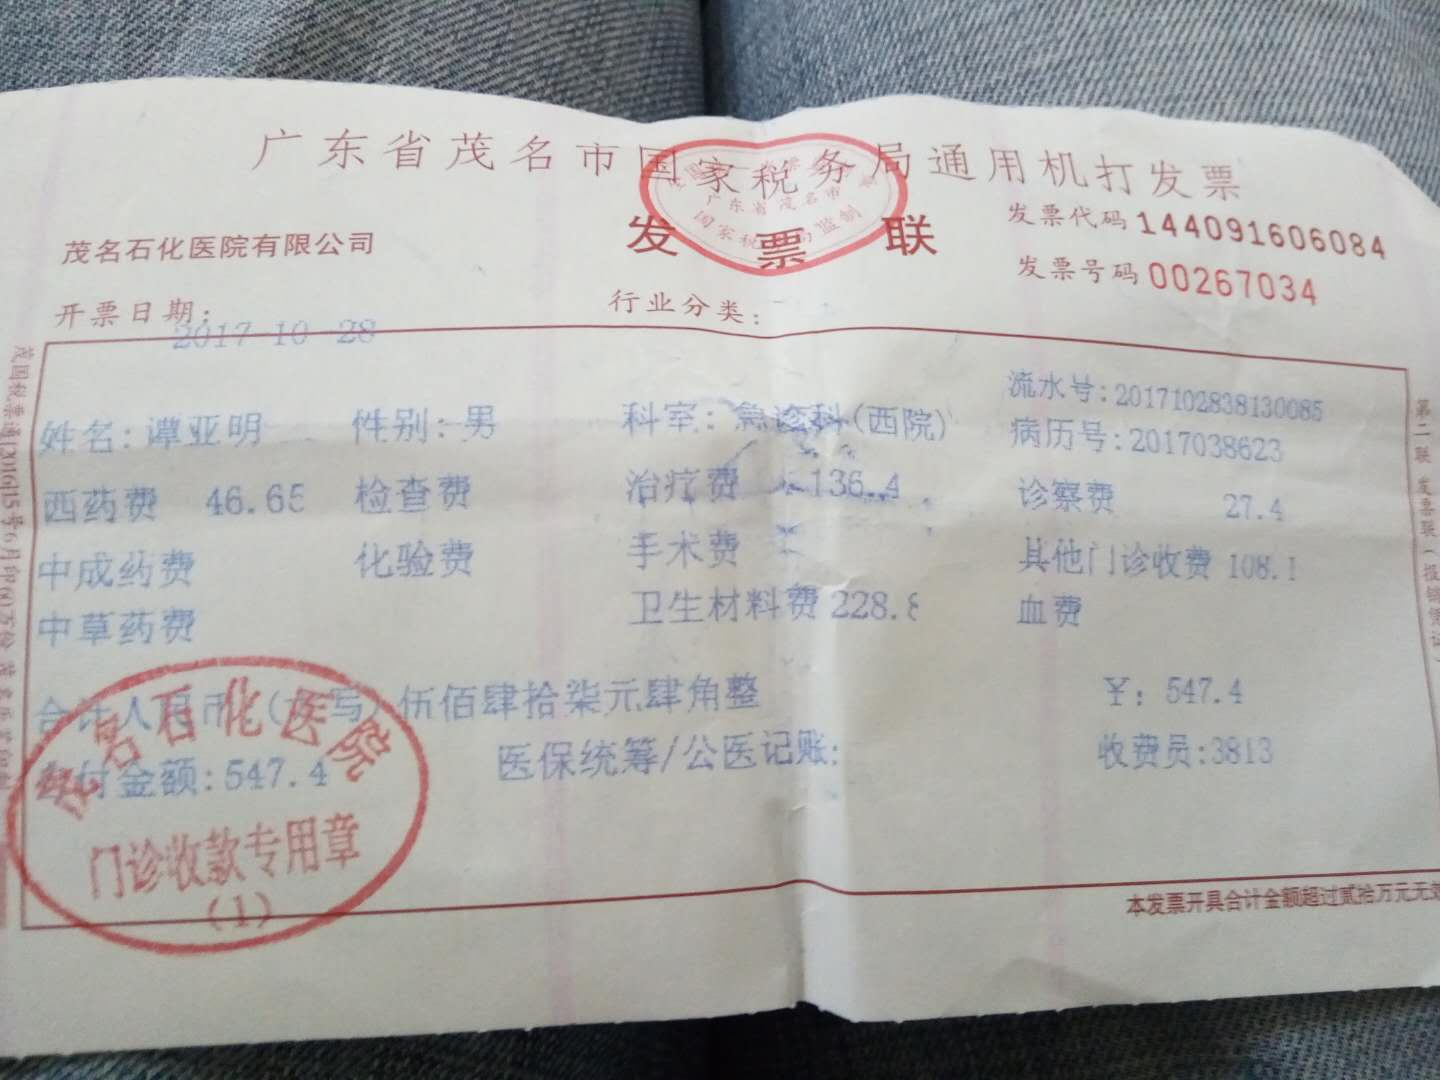 广东省茂名市国家税务局通用机打发票
发票联
广东省茂名市
茂名石化医院有限公司
发票代码 144091606084
发票号码 00267034
开票日期: 2017-10-28
行业分类:
流水号:2017102838130085
姓名:谭亚明 性别:男 科室:急诊科(西院) 病历号:2017038623
西药费 46.65 检查费 治疗费 136.4 诊察费 27.4
中成药费 化验费 手术费 其他门诊收费 108.1
中草药费 卫生材料费 228.8 血费
合计人民币(大写) 伍佰肆拾柒元肆角整 ¥: 547.4
付金额:547.4 医保统筹/公医记账: 收费员:3813
茂名石化医院
门诊收款专用章
(1)
本发票开具合计金额超过贰拾万元无效
第二联 发票联(报销凭证)